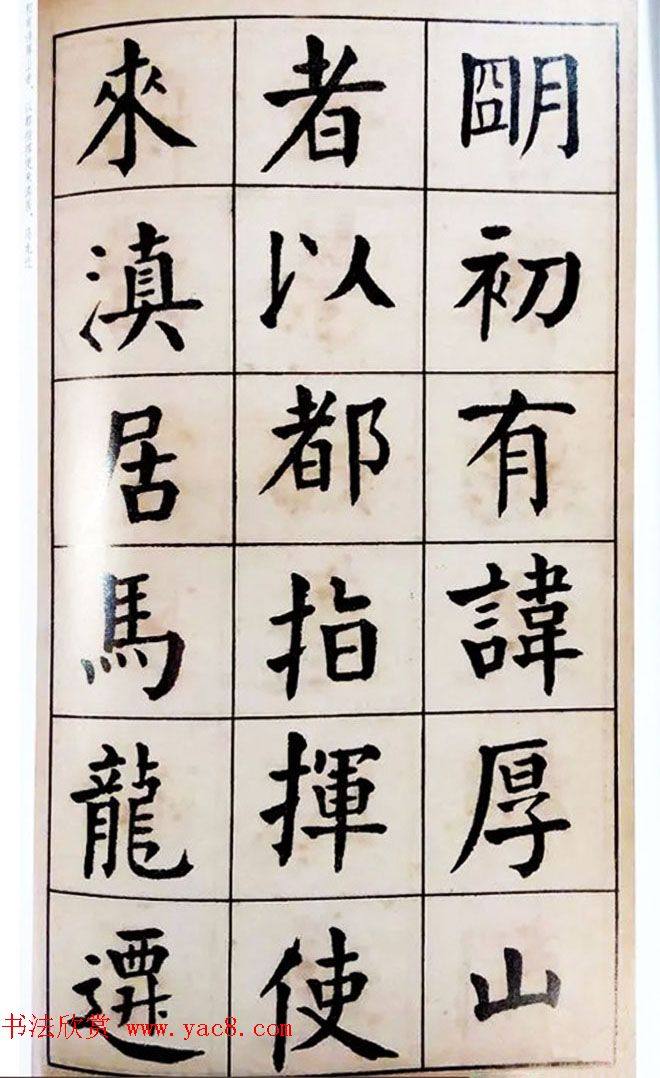 朙初有諱厚山
者以都指揮使
來滇居馬龍遷
书法欣赏 www.yac8.com